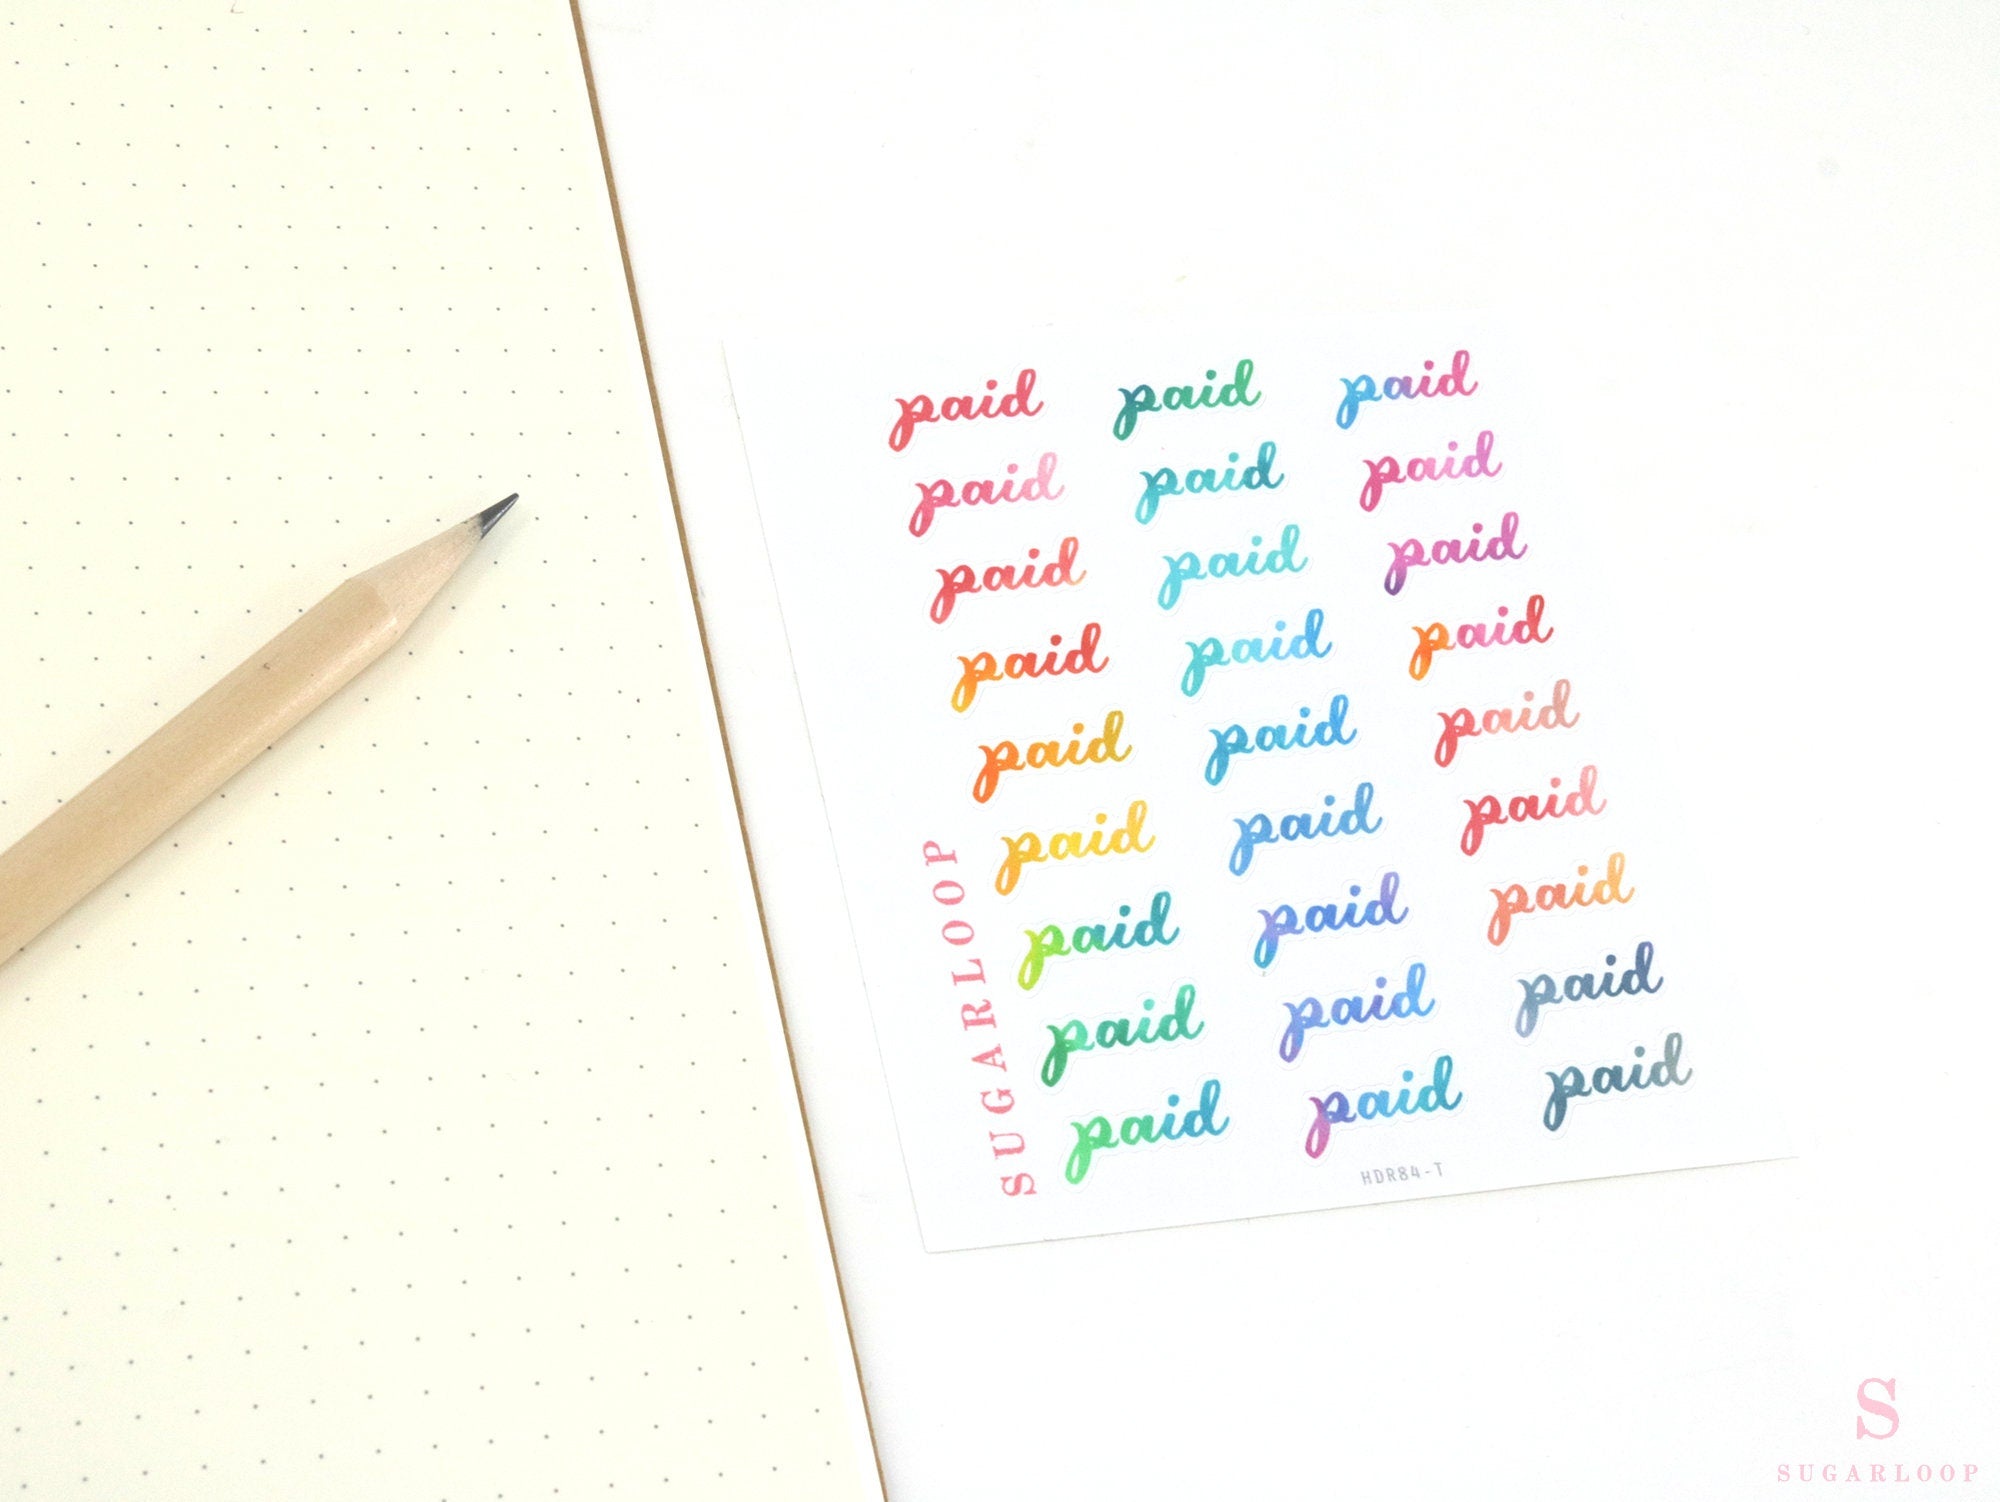 paid paid paid
paid paid paid
paid paid paid
paid paid paid
paid paid paid
paid paid paid
paid paid paid
paid paid paid
paid paid paid
SUGARLOOP
HDR84-T
S
SUGARLOOP